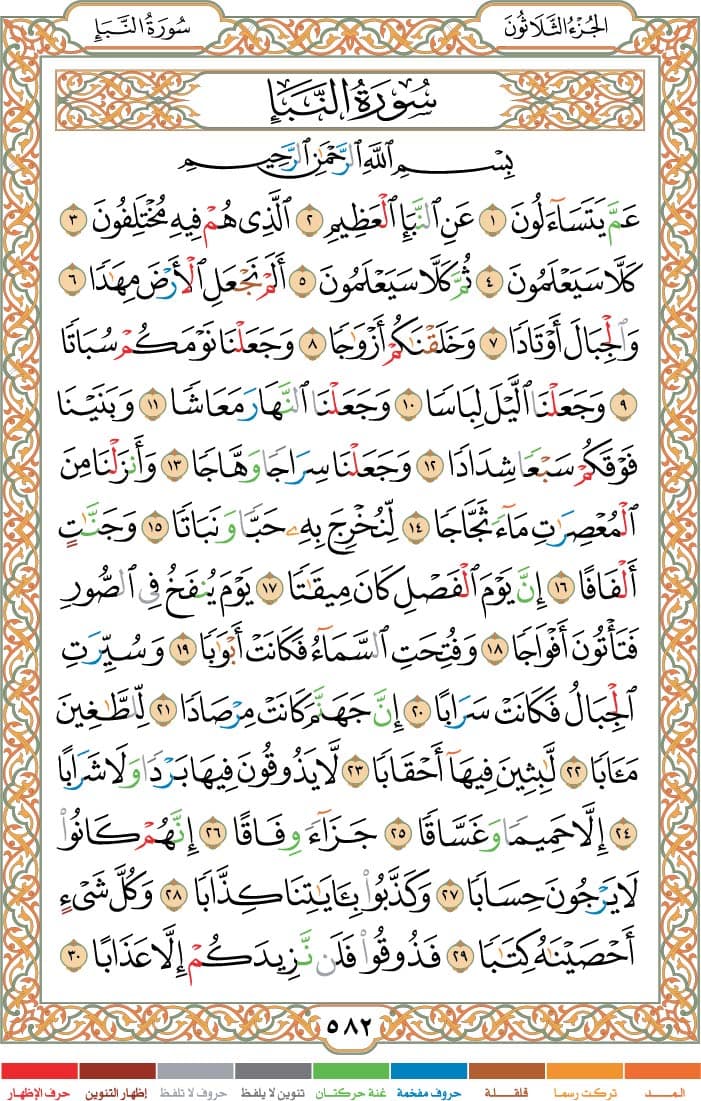 سُورَةُ النَّبَإِ
الجُزْءُ الثَّلَاثُونَ
سُورَةُ النَّبَإِ
بِسْمِ ٱللَّهِ ٱلرَّحْمَٰنِ ٱلرَّحِيمِ
عَمَّ يَتَسَآءَلُونَ ١ عَنِ ٱلنَّبَإِ ٱلْعَظِيمِ ٢ ٱلَّذِى هُمْ فِيهِ مُخْتَلِفُونَ ٣
كَلَّا سَيَعْلَمُونَ ٤ ثُمَّ كَلَّا سَيَعْلَمُونَ ٥ أَلَمْ نَجْعَلِ ٱلْأَرْضَ مِهَٰدًا ٦
وَٱلْجِبَالَ أَوْتَادًا ٧ وَخَلَقْنَٰكُمْ أَزْوَٰجًا ٨ وَجَعَلْنَا نَوْمَكُمْ سُبَاتًا
٩ وَجَعَلْنَا ٱلَّيْلَ لِبَاسًا ١٠ وَجَعَلْنَا ٱلنَّهَارَ مَعَاشًا ١١ وَبَنَيْنَا
فَوْقَكُمْ سَبْعًا شِدَادًا ١٢ وَجَعَلْنَا سِرَاجًا وَهَّاجًا ١٣ وَأَنزَلْنَا مِنَ
ٱلْمُعْصِرَٰتِ مَآءً ثَجَّاجًا ١٤ لِّنُخْرِجَ بِهِۦ حَبًّا وَنَبَاتًا ١٥ وَجَنَّٰتٍ
أَلْفَافًا ١٦ إِنَّ يَوْمَ ٱلْفَصْلِ كَانَ مِيقَٰتًا ١٧ يَوْمَ يُنفَخُ فِى ٱلصُّورِ
فَتَأْتُونَ أَفْوَاجًا ١٨ وَفُتِحَتِ ٱلسَّمَآءُ فَكَانَتْ أَبْوَٰبًا ١٩ وَسُيِّرَتِ
ٱلْجِبَالُ فَكَانَتْ سَرَابًا ٢٠ إِنَّ جَهَنَّمَ كَانَتْ مِرْصَادًا ٢١ لِّلطَّٰغِينَ
مَـَٔابًا ٢٢ لَّٰبِثِينَ فِيهَآ أَحْقَابًا ٢٣ لَّا يَذُوقُونَ فِيهَا بَرْدًا وَلَا شَرَابًا
٢٤ إِلَّا حَمِيمًا وَغَسَّاقًا ٢٥ جَزَآءً وِفَاقًا ٢٦ إِنَّهُمْ كَانُوا۟
لَا يَرْجُونَ حِسَابًا ٢٧ وَكَذَّبُوا۟ بِـَٔايَٰتِنَا كِذَّابًا ٢٨ وَكُلَّ شَىْءٍ
أَحْصَيْنَٰهُ كِتَٰبًا ٢٩ فَذُوقُوا۟ فَلَن نَّزِيدَكُمْ إِلَّا عَذَابًا ٣٠
٥٨٢
المــد تركت رسما قلقلة حروف مفخمة غنة حركتان تنوين لا يلفظ حروف لا تلفظ إظهار التنوين حرف الإظهار